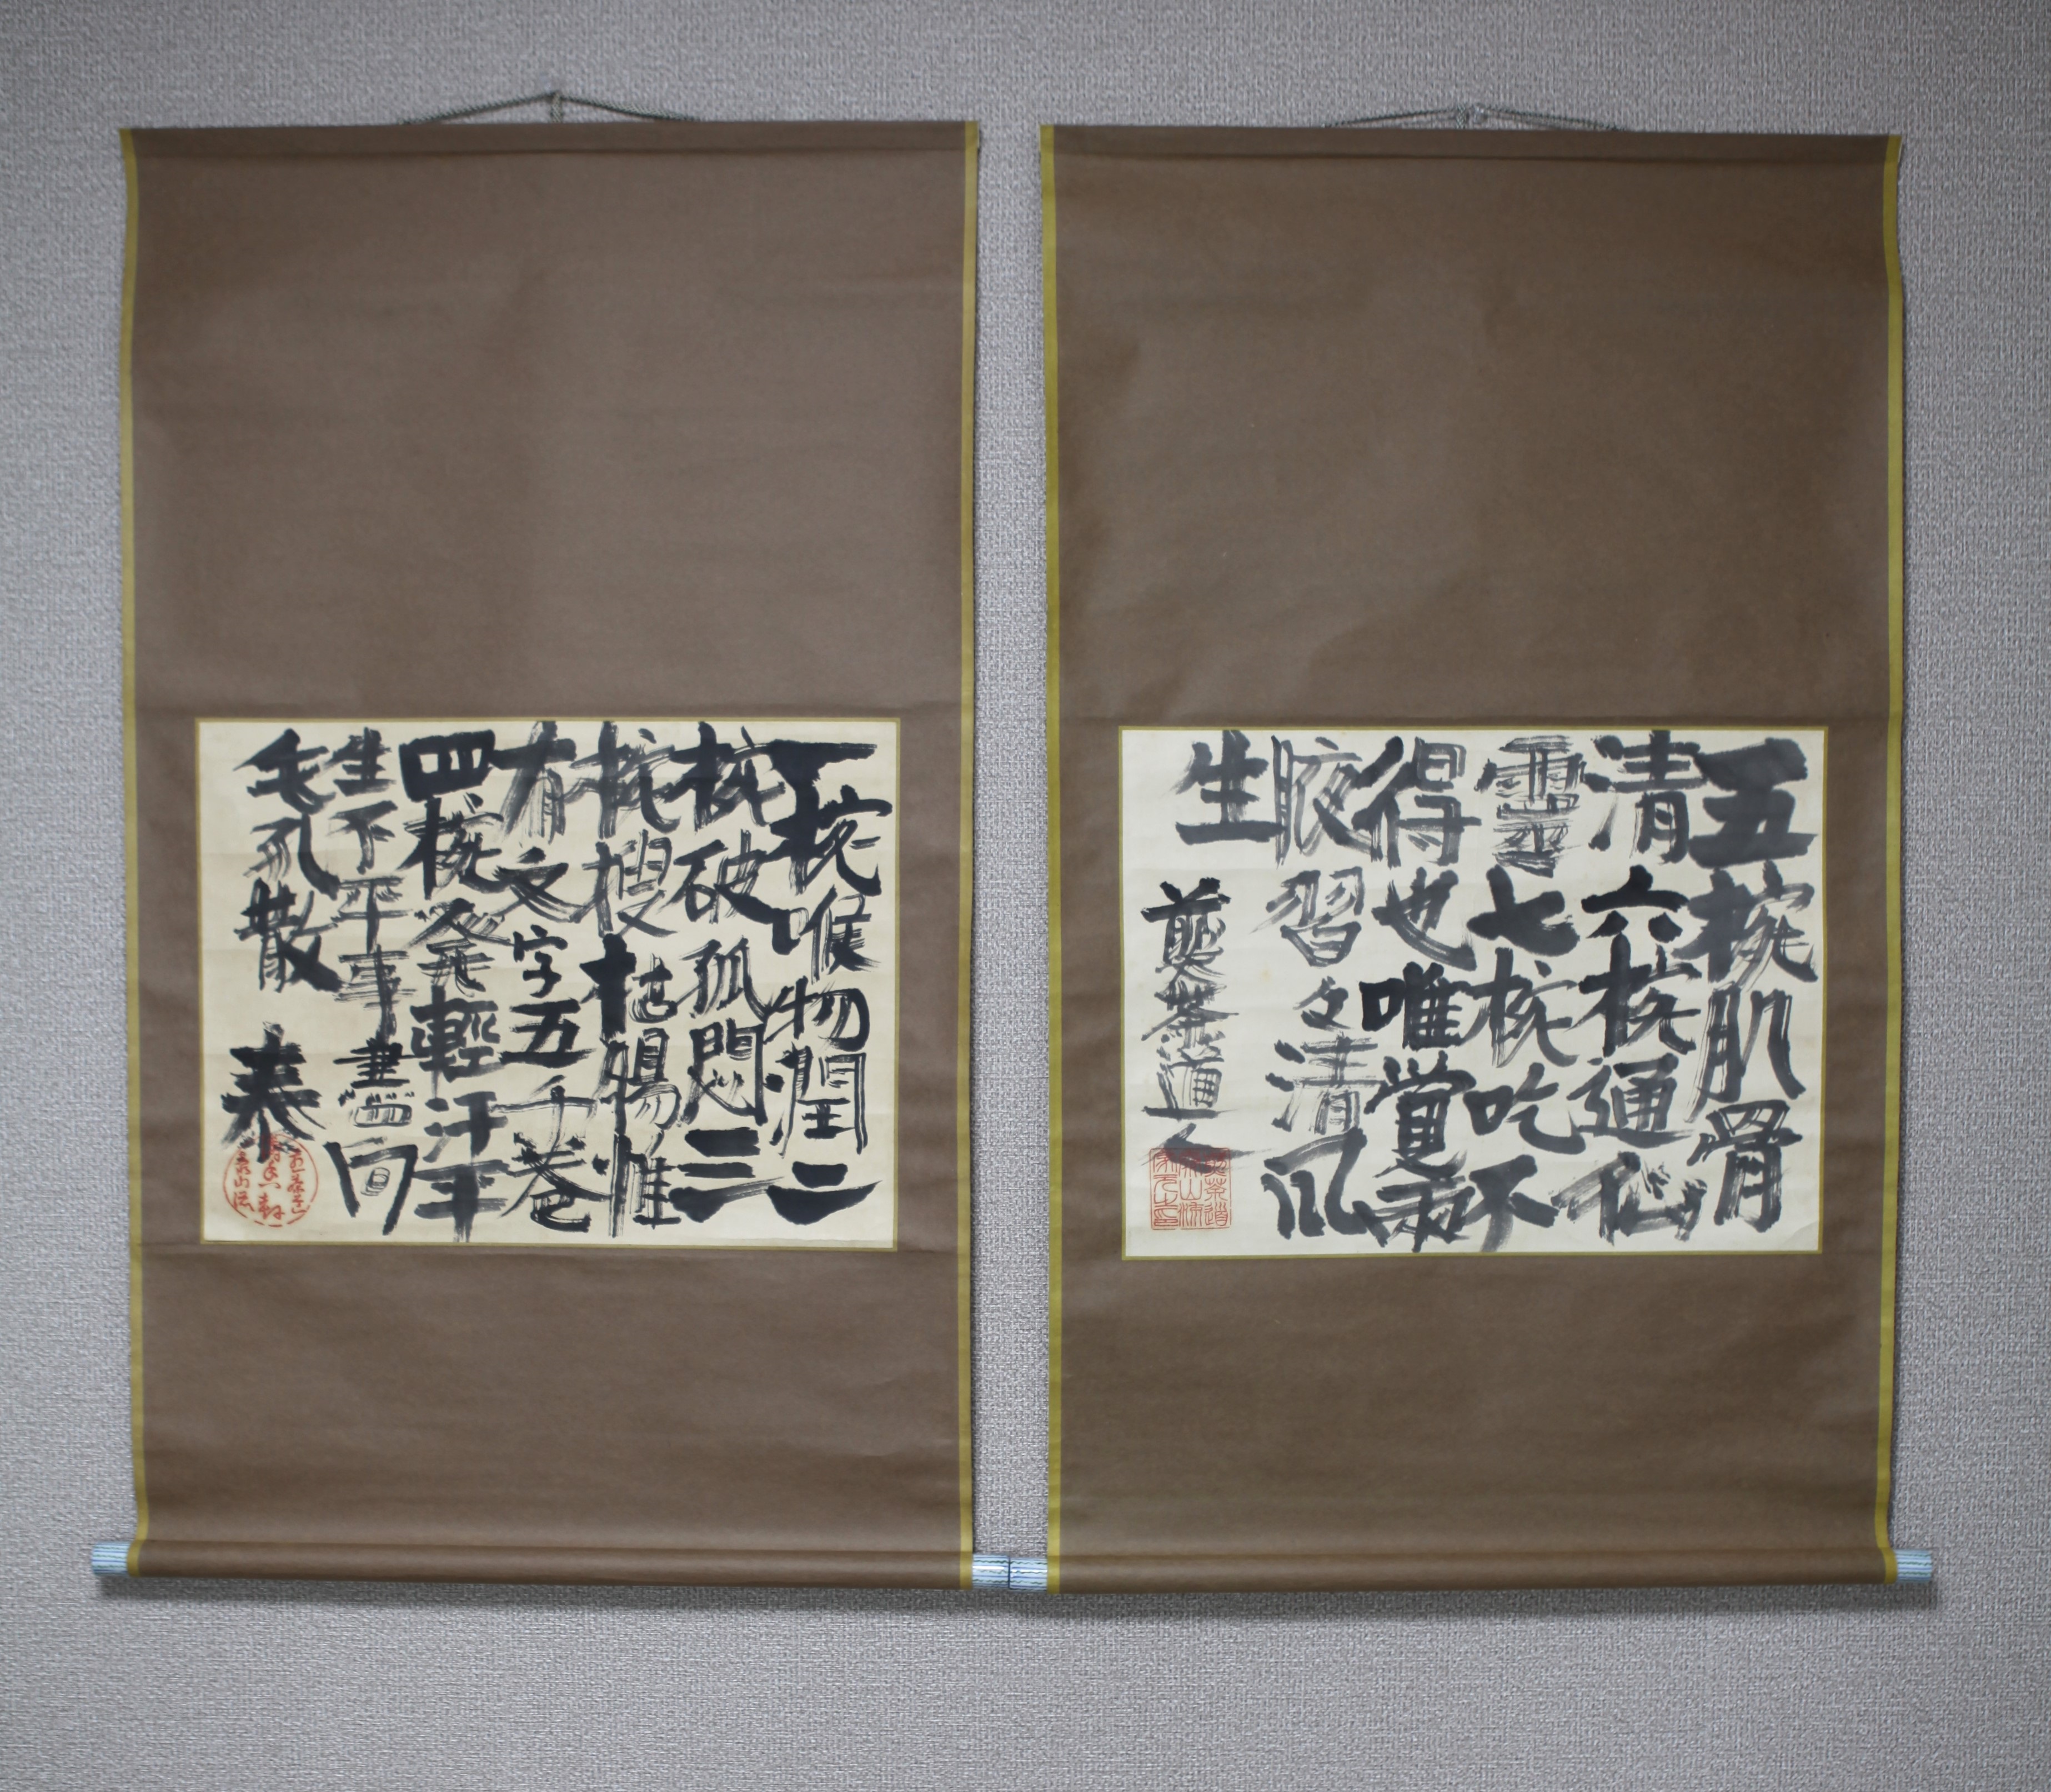 一椀喉物潤二
椀破孤悶三
椀搜枯腸惟
有文字五千巻
四椀発輕汗平
生不平事盡向
毛孔散 泰
五椀肌骨
清六椀通仙
靈七椀吃不
得也唯覺兩
腋習々清風
生 煎茶道人